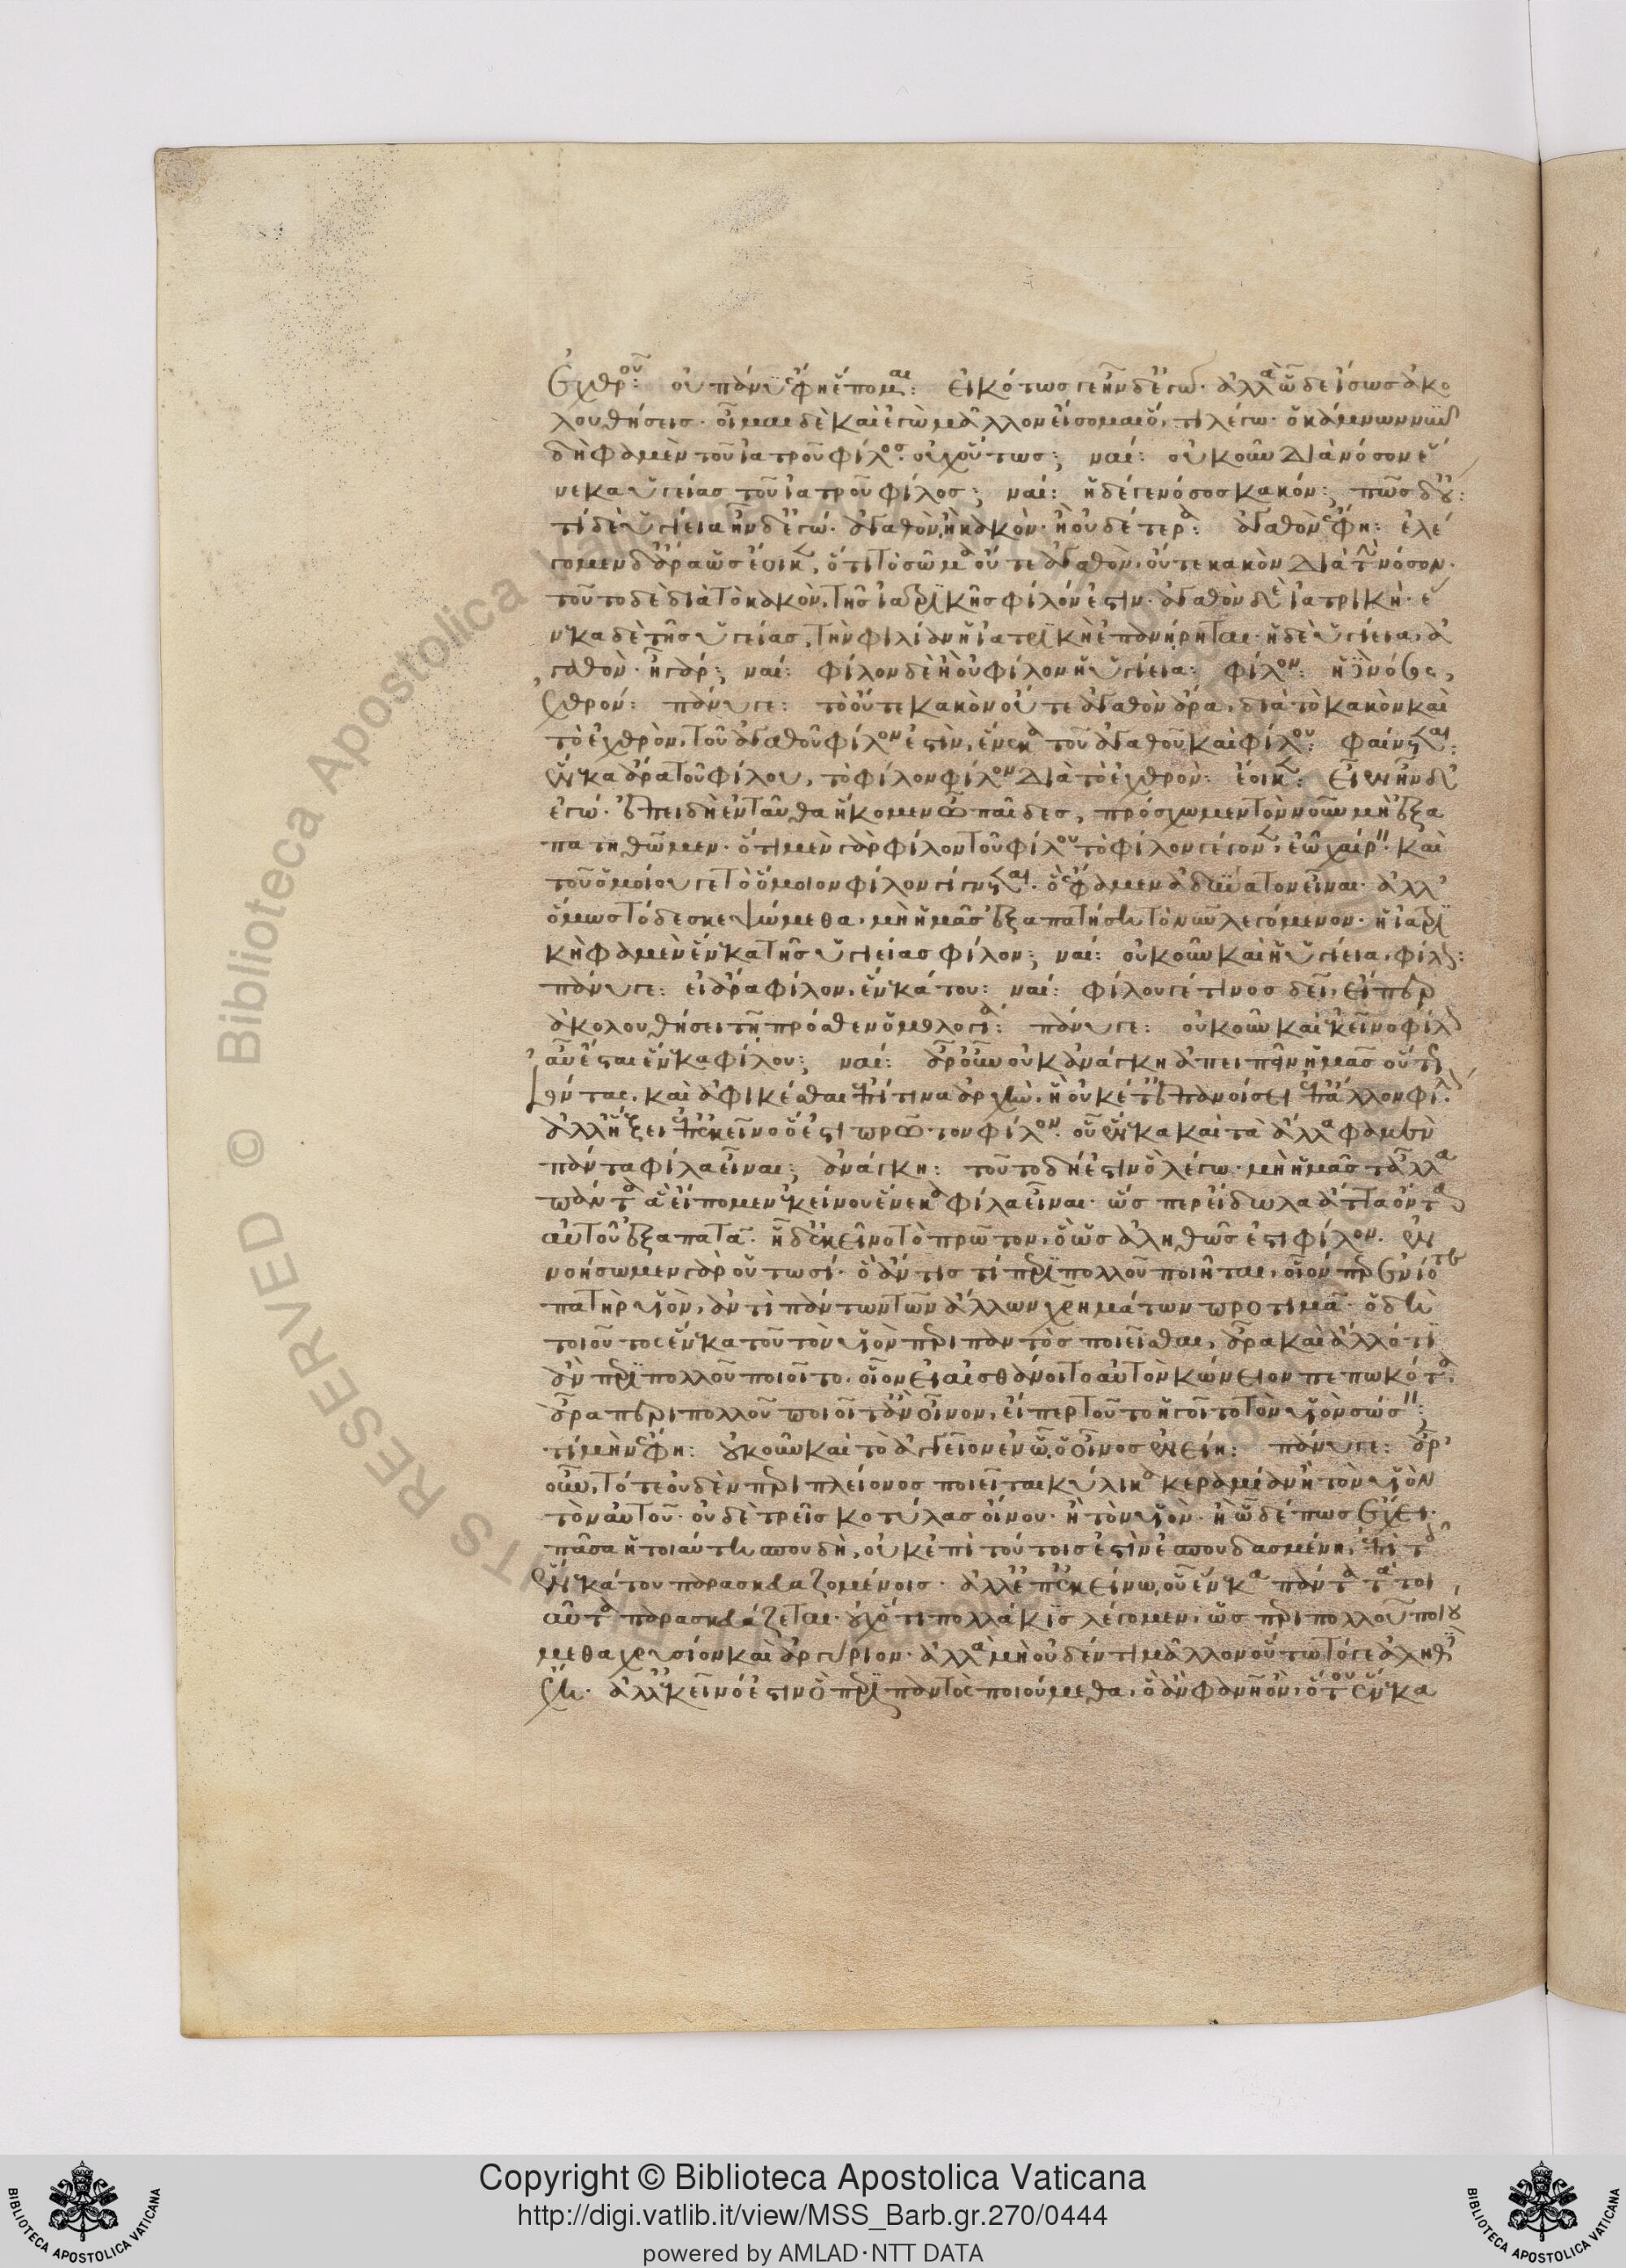 ἐχθροῦ: οὐ πάνυ ἔφη ἕπομαι: εἰκότως γε ἦν δ' ἐγώ· ἀλλὰ ὧδε ἴσως ἀκο
λουθήσεις· οἶμαι δὲ καὶ ἐγὼ μᾶλλον εἴσομαι ὅ, τι λέγω· ὁ κάμνων νῦν
δὴ φαμὲν τοῦ ἰατροῦ φίλος· οὐχ οὕτως; ναί: οὐκοῦν διὰ νόσον ἕ
νεκα ὑγιείας τοῦ ἰατροῦ φίλος; ναί: ἡ δέ γε νόσος κακόν; πῶς δ' οὔ:
τί δὲ ὑγίεια ἦν δ' ἐγώ· ἀγαθὸν, ἢ κακὸν· ἢ οὐδέτερα: ἀγαθὸν ἔφη: ἐλέ
γομεν δ' ἄρα ὡς ἔοικε, ὅτι τὸ σῶμα οὔτε ἀγαθὸν, οὔτε κακὸν διὰ τὴν νόσον·
τοῦτο δὲ διὰ τὸ κακὸν, τῆς ἰατρικῆς φίλόν ἐστιν· ἀγαθὸν δὲ ἰατρική· ἕ
νεκα δὲ τῆς ὑγιείας, τὴν φιλίαν ἡ ἰατρικὴ ἐπανήρηται· ἡ δὲ ὑγίεια, ἀ
γαθὸν· ἦ γάρ; ναί: φίλον δὲ ἢ οὐ φίλον ἡ ὑγίεια: φίλον: ἡ δὲ νόσος,
ἐχθρόν: πάνυ γε: τὸ οὔτε κακὸν οὔτε ἀγαθὸν ἄρα, διὰ τὸ κακὸν καὶ
τὸ ἐχθρὸν, τοῦ ἀγαθοῦ φίλον ἐστὶν, ἕνεκα τοῦ ἀγαθοῦ καὶ φίλου: φαίνεται:
ἕνεκα ἄρα τοῦ φίλου, τὸ φίλον φίλον διὰ τὸ ἐχθρὸν: ἔοικε: εἶεν ἦν δ'
ἐγώ· ἐπειδὴ ἐνταῦθα ἥκομεν ὦ παῖδες, πρόσχωμεν τὸν νοῦν μὴ ἐξα
πατηθῶμεν· ὅτι μὲν γὰρ φίλον τοῦ φίλου τὸ φίλον γέγονε, ἐῶ χαίρειν· καὶ
τοῦ ὁμοίου γε τὸ ὅμοιον φίλον γίγνεται· ὅ φαμεν ἀδύνατον εἶναι· ἀλλ'
ὅμως τόδε σκεψώμεθα, μὴ ἡμᾶς ἐξαπατήσῃ τὸ νῦν λεγόμενον· ἡ ἰατρι
κὴ φαμὲν ἕνεκα τῆς ὑγιείας φίλον; ναί: οὐκοῦν καὶ ἡ ὑγίεια, φίλον:
πάνυ γε: εἰ ἄρα φίλον, ἕνεκά του: ναί: φίλου γέ τινος δεῖ, εἴπερ
ἀκολουθήσει τῇ πρόσθεν ὁμολογίᾳ: πάνυ γε: οὐκοῦν καὶ ἐκεῖνο φίλον
αὖ ἔσται ἕνεκα φίλου; ναί: ἆρ' οὖν οὐκ ἀνάγκη ἀπειπεῖν ἡμᾶς οὕτως
ἰόντας, καὶ ἀφικέσθαι ἐπί τινα ἀρχὴν, ἣ οὐκέτ' ἐπανοίσει ἐπ' ἄλλον φίλον·
ἀλλ' ἥξει ἐπ' ἐκεῖνο ὅ ἐστι πρῶτον φίλον· οὗ ἕνεκα καὶ τὰ ἄλλα φαμὲν
πάντα φίλα εἶναι; ἀνάγκη: τοῦτο δή ἐστιν ὃ λέγω· μὴ ἡμᾶς τἆλλα
πάντα ἃ εἴπομεν ἐκείνου ἕνεκα φίλα εἶναι· ὥσπερ εἴδωλα ἄττα ὄντα
αὐτοῦ ἐξαπατᾷ· ᾖ δ' ἐκεῖνο τὸ πρῶτον, ὃ ὡς ἀληθῶς ἐστι φίλον· ἐν
νοήσωμεν γὰρ οὑτωσί· ὃ ἄν τις τὶ περὶ πολλοῦ ποιῆται, οἷόν περ ἐνίοτε
πατὴρ υἱὸν, ἀντὶ πάντων τῶν ἄλλων χρημάτων προτιμᾷ· ὁ δὴ
τοιοῦτος ἕνεκα τοῦ τὸν υἱὸν περὶ παντὸς ποιεῖσθαι, ἆρα καὶ ἄλλό τι
ἂν περὶ πολλοῦ ποιοῖτο· οἷον εἰ αἰσθάνοιτο αὐτὸν κώνειον πεπωκότα,
ἆρα περὶ πολλοῦ ποιοῖτ' ἂν οἶνον, εἴπερ τοῦτο ἡγοῖτο τὸν υἱὸν σώσειν;
τί μὴν ἔφη: οὐκοῦν καὶ τὸ ἀγγεῖον ἐν ᾧ, ὁ οἶνος ἐνείη: πάνυ γε: ἆρ'
οὖν, τότε οὐδὲν περὶ πλείονος ποιεῖται κύλικα κεραμέαν ἢ τὸν υἱὸν
τὸν αὑτοῦ· οὐδὲ τρεῖς κοτύλας οἴνου· ἢ τὸν υἱὸν· ἢ ὧδέ πως ἔχει·
πᾶσα ἡ τοιαύτη σπουδὴ, οὐκ ἐπὶ τούτοις ἐστὶν ἐσπουδασμένη, ἐπὶ τοῖς
ἕνεκά του παρασκευαζομένοις· ἀλλ' ἐπ' ἐκείνῳ, οὗ ἕνεκα πάντα τὰ τοι
αῦτα παρασκευάζεται· οὐχ ὅτι πολλάκις λέγομεν, ὡς περὶ πολλοῦ ποιού
μεθα χρυσίον καὶ ἀργύριον· ἀλλὰ μὴ οὐδέν τι μᾶλλον οὕτω τό γε ἀληθὲς
ἔχῃ· ἀλλ' ἐκεῖνό ἐστιν ὃ περὶ παντὸς ποιούμεθα, ὃ ἂν φανῇ ὄν, ὅτου ἕνεκα
Copyright © Biblioteca Apostolica Vaticana
http://digi.vatlib.it/view/MSS_Barb.gr.270/0444
powered by AMLAD·NTT DATA